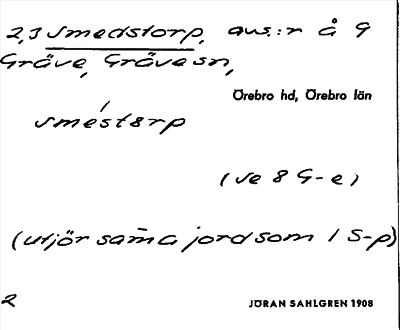 2,3 Smedstorp, avs.:r å G
Gräve, Gräve sn,
Örebro hd, Örebro län
sméstørp
(se 8 G-e)
(utjör sam̄a jord som 1 S-p)
2
JÖRAN SAHLGREN 1908